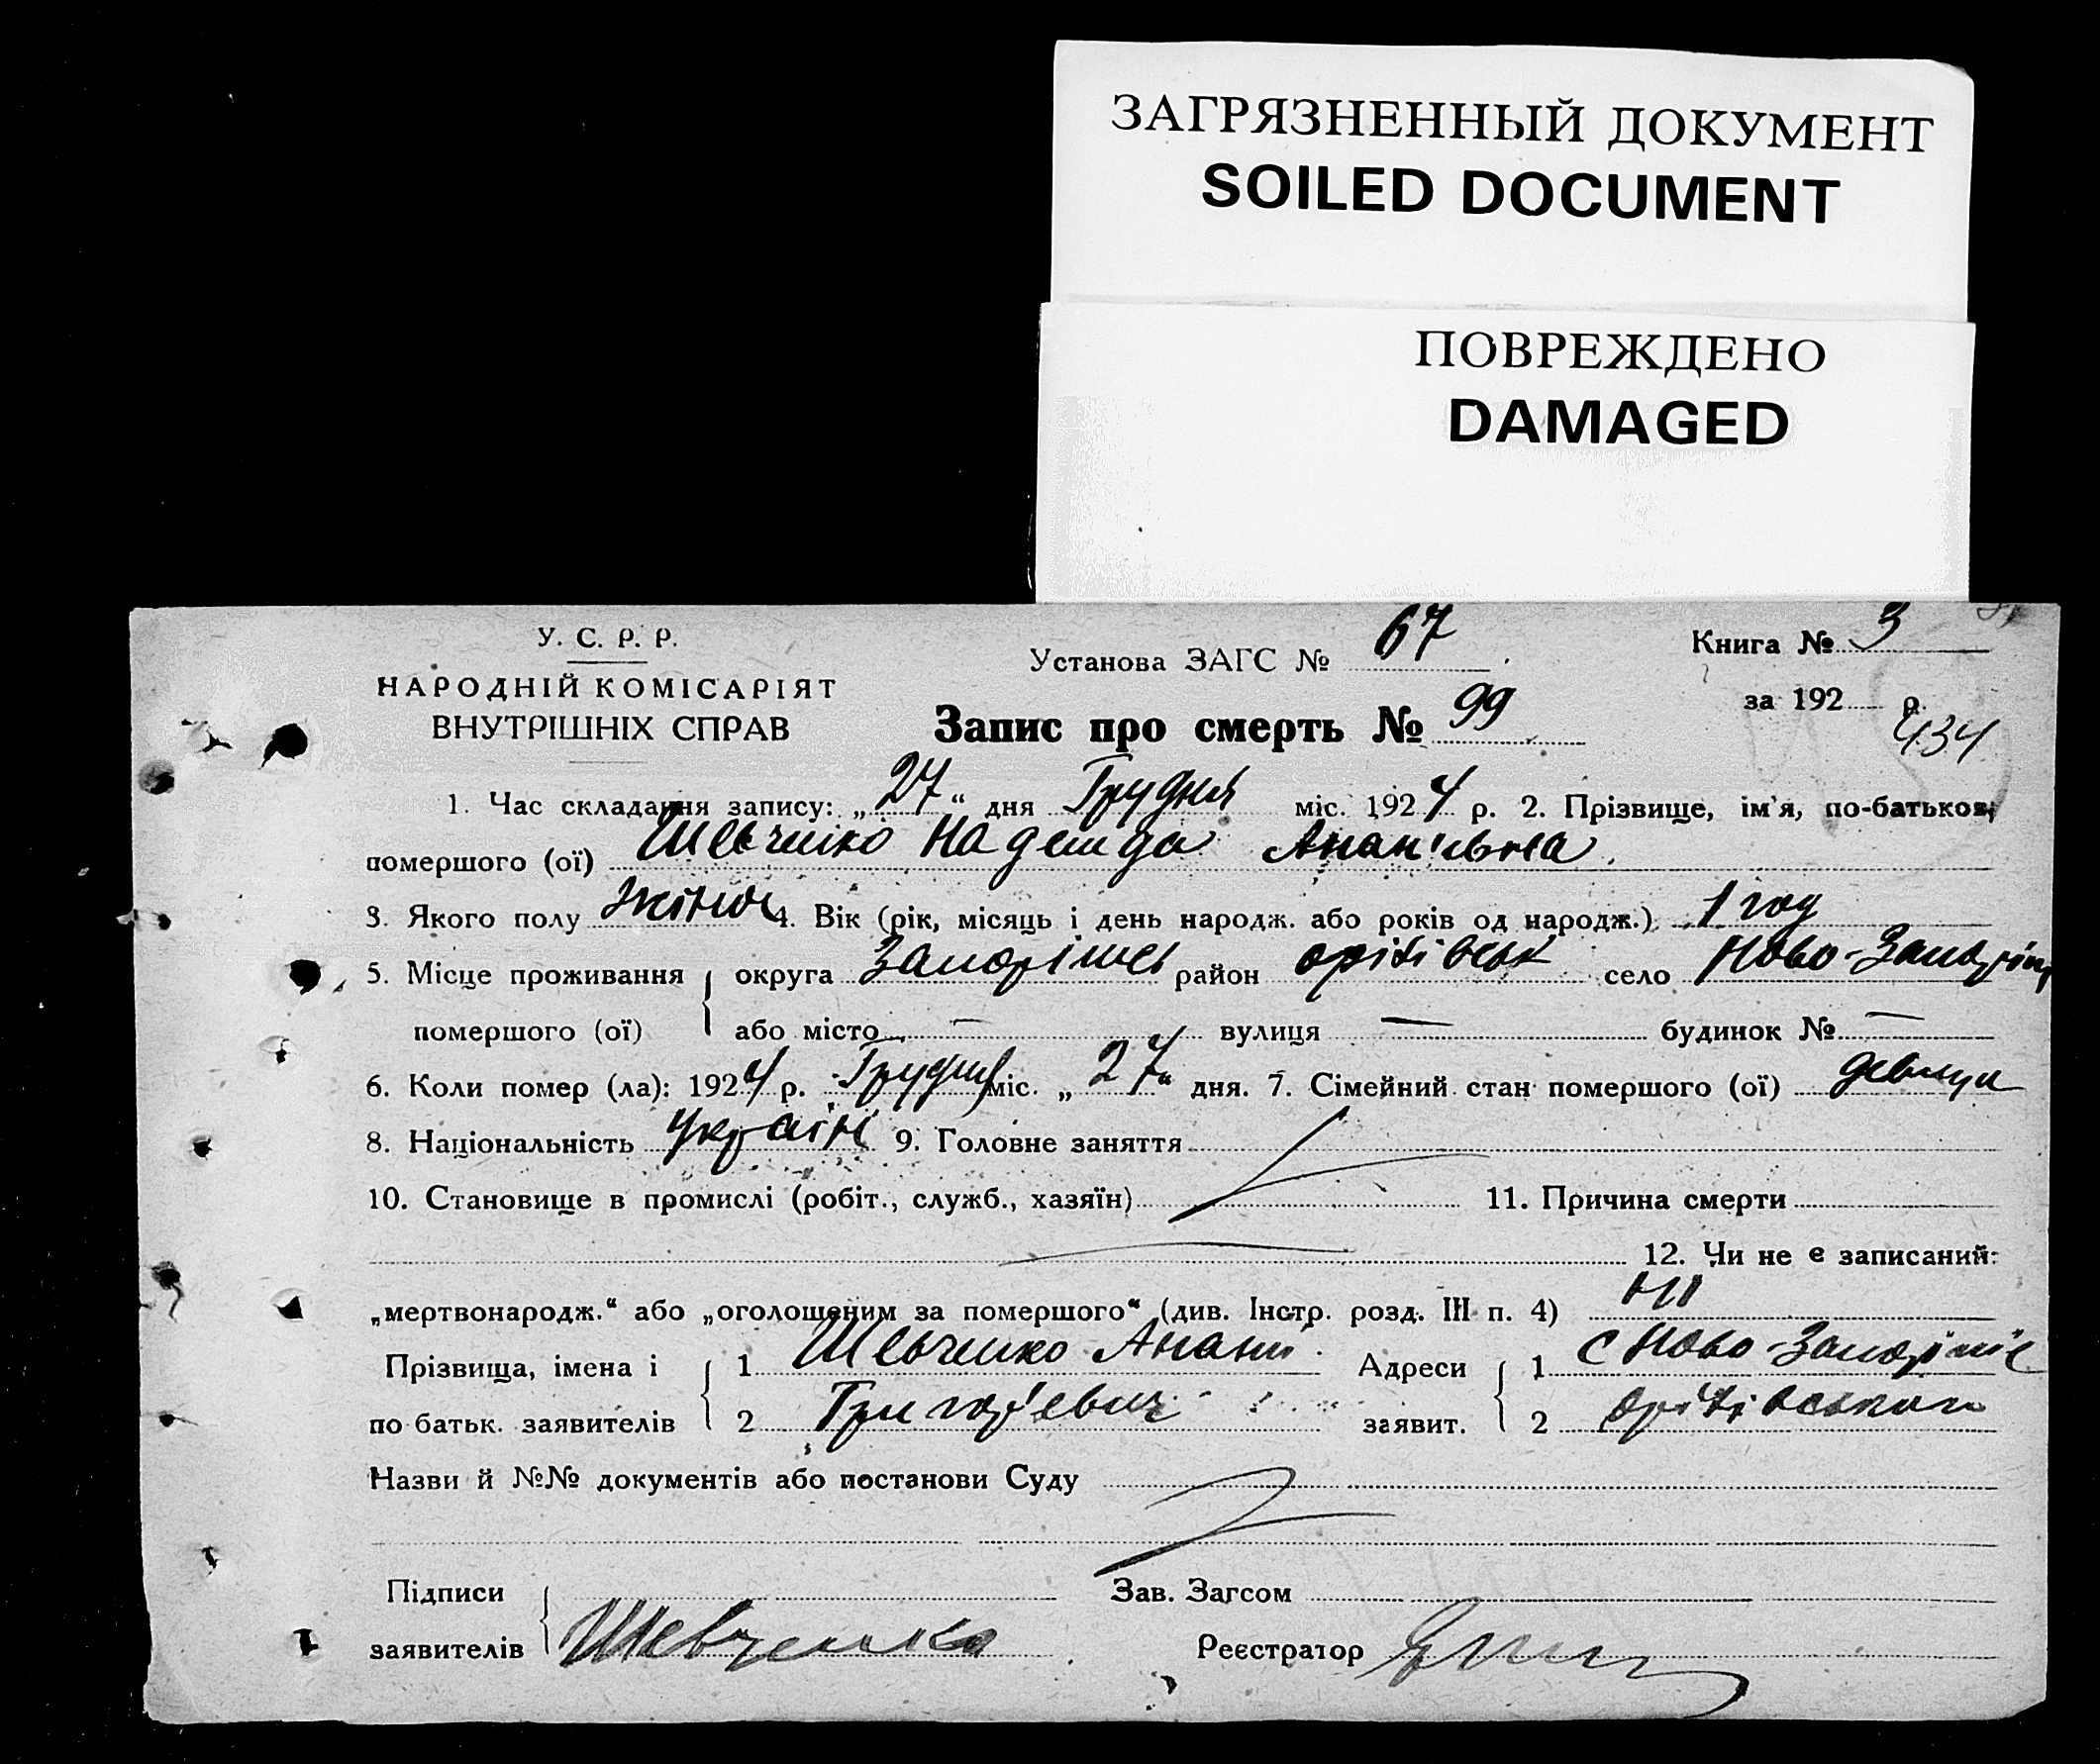 ЗАГРЯЗНЕННЫЙ ДОКУМЕНТ
SOILED DOCUMENT
ПОВРЕЖДЕНО
DAMAGED
У. С. Р. Р.
НАРОДНІЙ КОМІСАРІЯТ
ВНУТРІШНІХ СПРАВ
Установа ЗАГС № 67
Книга № 3
за 192 р.
434
Запис про смерть № 99
1. Час складання запису: „27“ дня Грудня міс. 1924 р. 2. Прізвище, ім'я, по-батькові
помершого (ої) Шевченко Надежда Ананьівна
3. Якого полу жіноч 4. Вік (рік, місяць і день народж. або років од народж.) 1 год
5. Місце проживання округа Запоріжс район оріхівськ село Ново-Запоріж
помершого (ої) або місто — вулиця — будинок № —
6. Коли помер (ла): 1924 р. Грудня міс. „27“ дня. 7. Сімейний стан помершого (ої) девица
8. Національність Україн 9. Головне заняття
10. Становище в промислі (робіт., служб., хазяїн) 11. Причина смерти
12. Чи не є записаний:
„мертвонародж.“ або „оголошеним за помершого“ (див. Інстр. розд. III п. 4) ні
Прізвища, імена і 1 Шевченко Анани Адреси 1 с Ново-Запоріжіє
по батьк. заявителів 2 Григорьевич заявит. 2 оріхівського
Назви й №№ документів або постанови Суду
Підписи Зав. Загсом
заявителів Шевченко Реєстратор